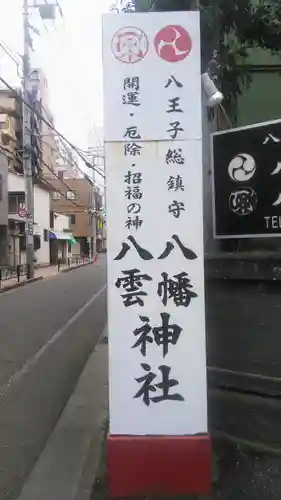 八王子総鎮守
開運・厄除・招福の神
八幡
八雲
神社
八
八
TEL